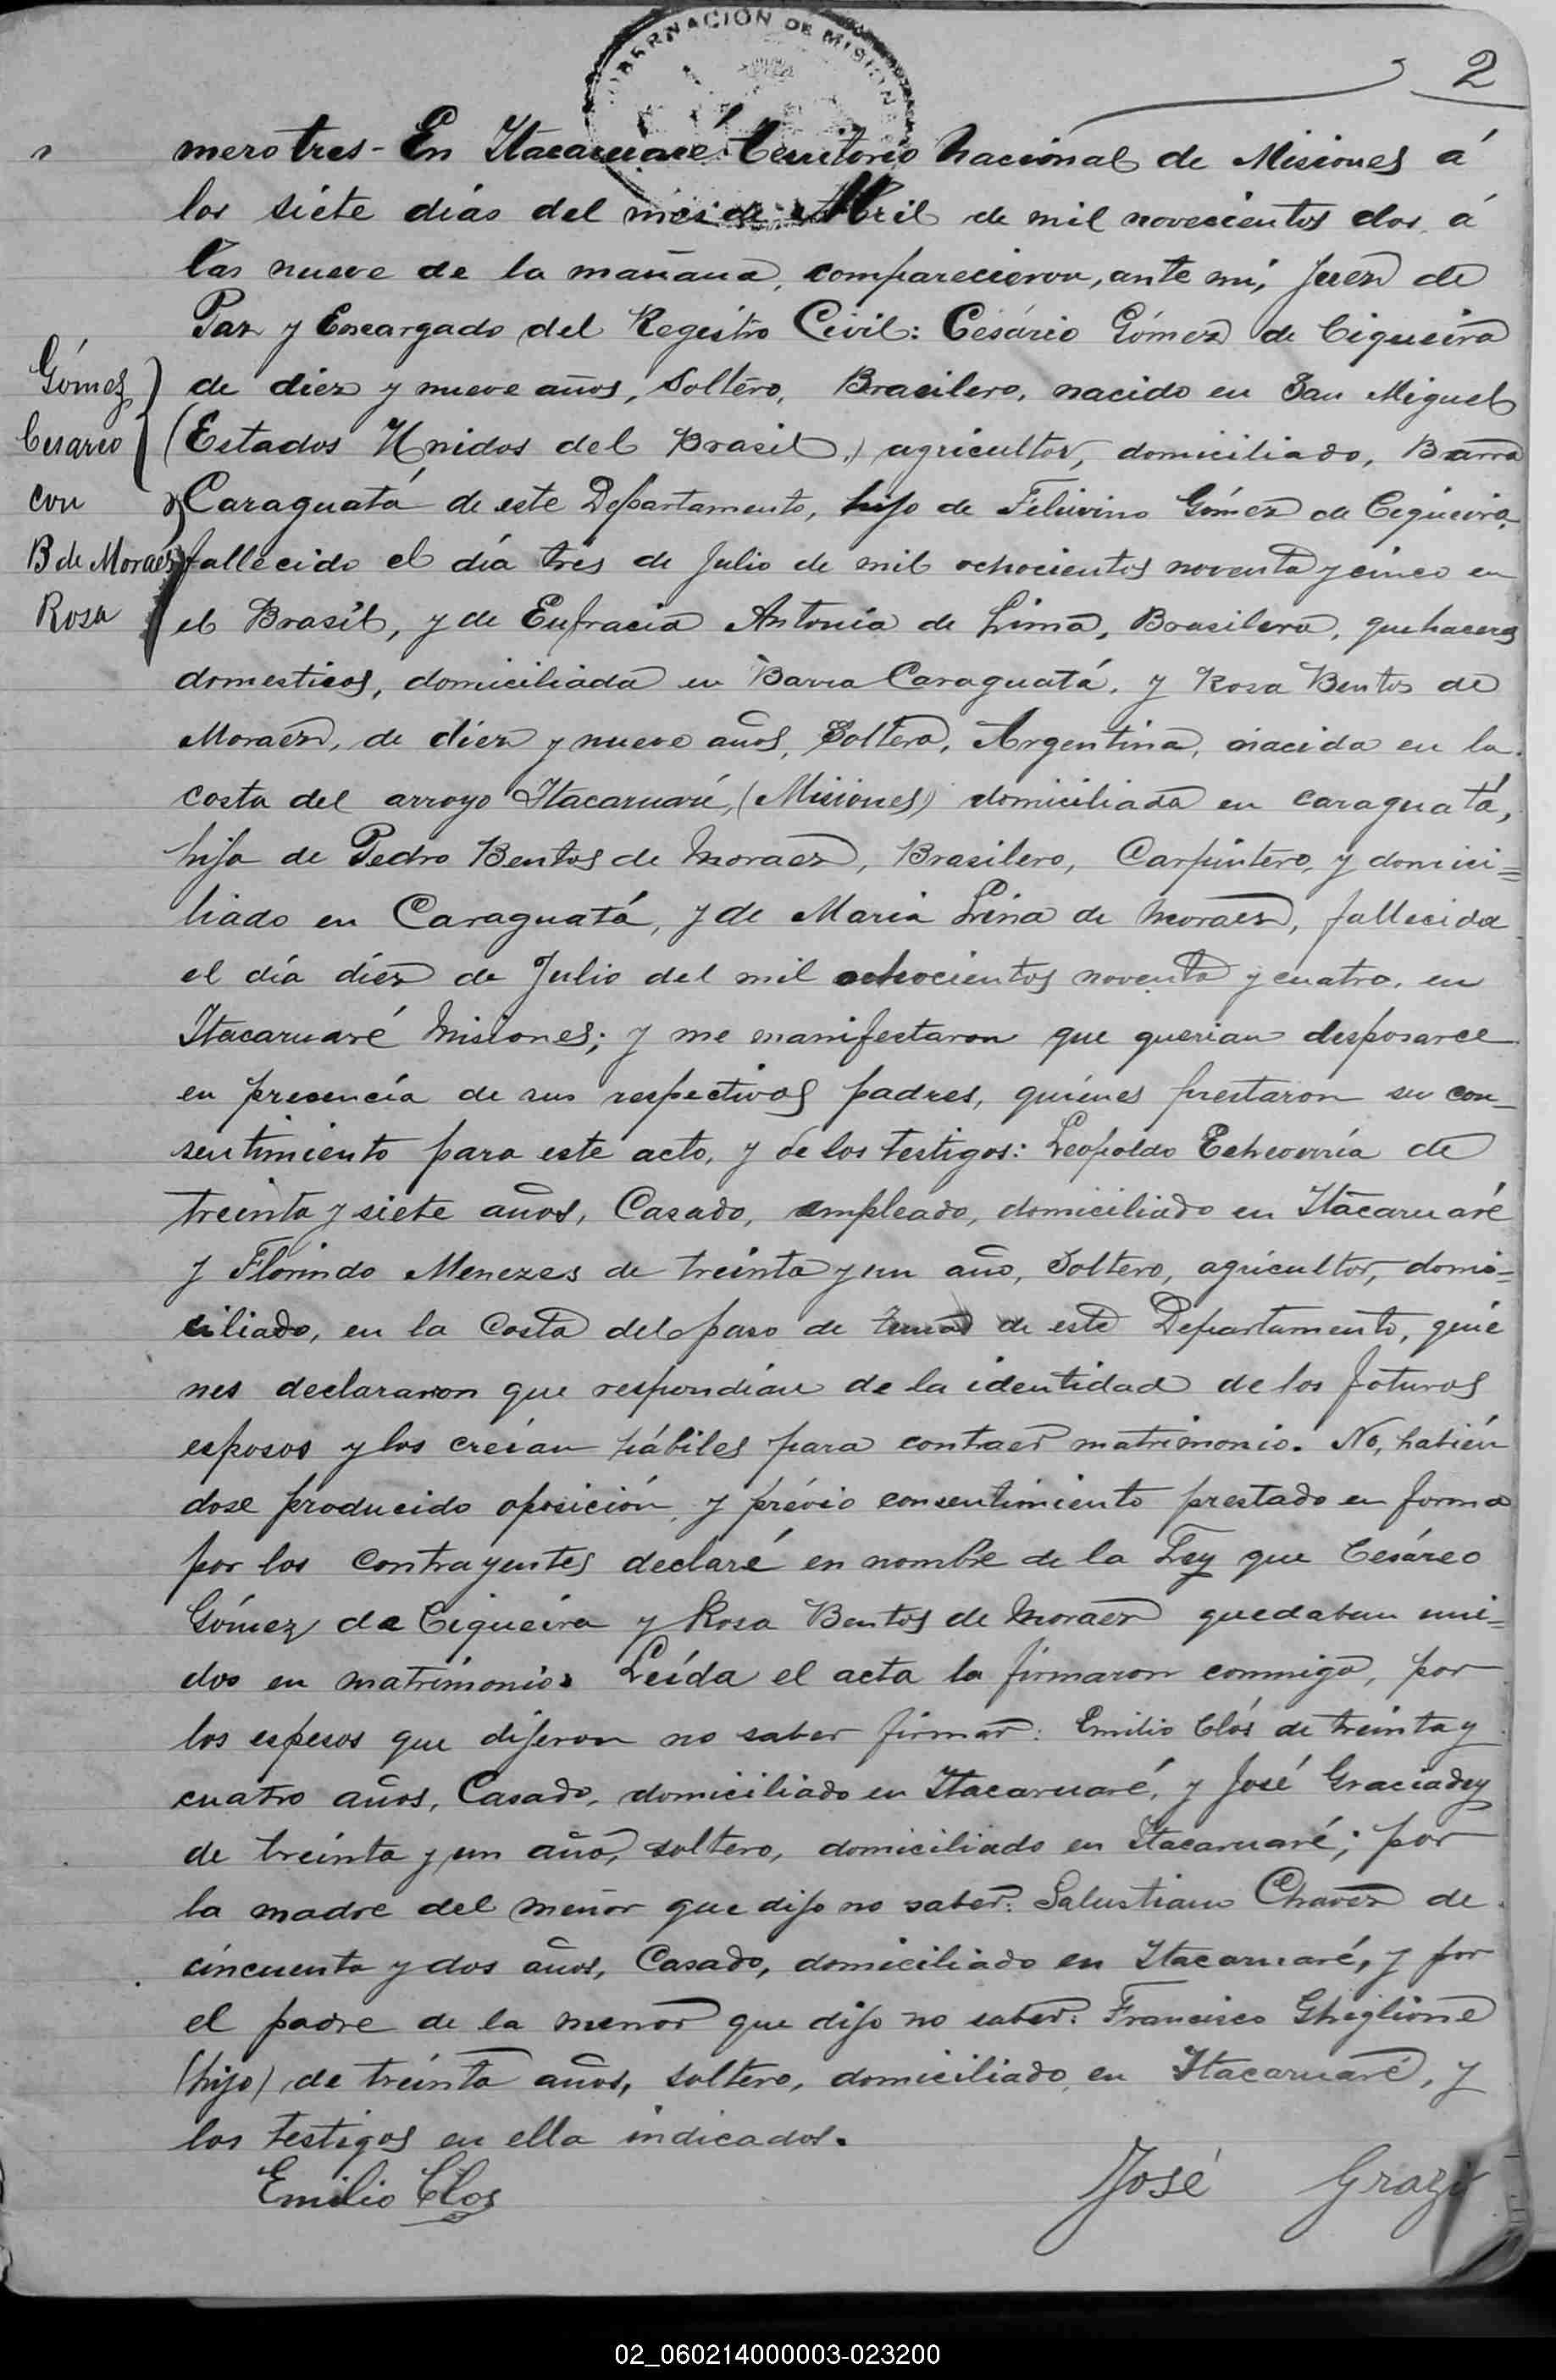 GOBERNACIÓN DE MISIONES
2
mero tres - En Itacaruaré Territorio Nacional de Misiones á
los siete dias del mes de Abril de mil novecientos dos, á
las nueve de la mañana, comparecieron, ante mi, Juez de
Paz y Encargado del Registro Civil: Cesário Gómez de Ciqueira
Gómez
de diez y nueve años, Soltero, Brasilero, nacido en San Miguel
Cesareo
(Estados Unidos del Brasil,) agricultor, domiciliado, Barra
con
Caraguatá de este Departamento, hijo de Gómez de Ciqueira
B de Moraez
fallecido el día tres de Julio de mil ochocientos noventa y cinco en
Rosa
el Brasil, y de Eufracia Antonia de Lima, Brasilera, quehaceres
domesticos, domiciliada en Barra Caraguatá, y Rosa Bentos de
Moraez, de diez y nueve años, Soltera, Argentina, nacida en la
costa del arroyo Itacaruaré, (Misiones) domiciliada en Caraguatá,
hija de Pedro Bentos de Moraez, Brasilero, Carpintero, y domici=
liado en Caraguatá, y de Maria Lina de Moraez, fallecida
el día diez de Julio del mil ochocientos noventa y cuatro, en
Itacaruaré Misiones; y me manifestaron que querian desposarce
en presencía de sus respectivos padres, quiénes prestaron su con-
sentimiento para este acto, y de los testigos: Leopoldo Echeverría de
treinta y siete años, Casado, empleado, domiciliado en Itacaruaré
y Florindo Menezes de treinta y un año, Soltero, agricultor, domi=
ciliado, en la Costa del paso de de este Departamento, quié
nes declararon que respondian de la identidad de los foturos
esposos y los creian hábiles para contraer matrimonio. No, habién
dose producido oposición, y prévio consentimiento prestado en forma
por los contrayentes declaré en nombre de la Ley que Cesáreo
Gómez de Ciqueira y Rosa Bentos de Moraez quedaban uni=
dos en matrimonio. Leída el acta la firmaron conmigo, por
los esposos que dijeron no saber firmar: Emilio Clós de treinta y
cuatro años, Casado, domiciliado en Itacaruaré, y José Graciadey
de treinta y un año, soltero, domiciliado en Itacaruaré; por
la madre del menor que dijo no saber: Salustiano Chavez de
cincuenta y dos años, Casado, domiciliado en Itacaruaré, y por
el padre de la menor que dijo no saber: Francisco Ghiglione
(hijo) de treinta años, soltero, domiciliado en Itacaruaré, y
los testigos en ella indicados.
Emilio Clos José
02_060214000003-023200